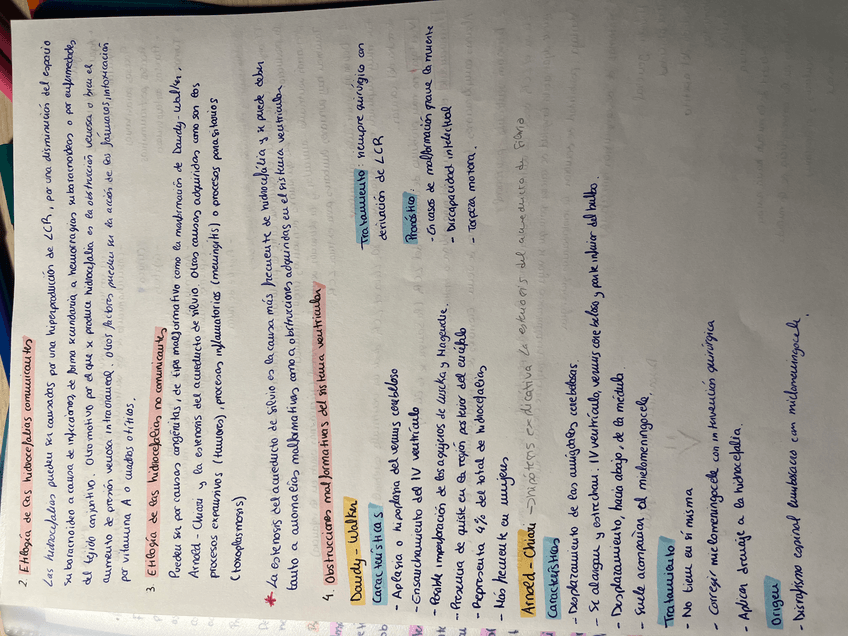 2 Etiología de las hidrocefalias comunicantes
Las hidrocefalias pueden ser causadas por una hiperproducción de LCR, por una disminución del espacio
subaracnoideo a causa de infecciones, de forma secundaria a hemorragias subaracnoideas o por enfermedades
del tejido conjuntivo. Otro motivo por el que se produce hidrocefalia es la obstrucción venosa o bien el
aumento de presión venosa intracraneal. Otros factores pueden ser la acción de los fármacos, intoxicación
por vitamina A o cuadros otíticos.
3 Etilogía de las hidrocefalias no comunicantes
Pueden ser por causas congénitas, de tipo malformativo como la malformación de Dandy-Walker,
Arnold-Chiari y la estenosis del acueducto de silvio. Otras causas adquiridas como son los
procesos expansivos (tumores), procesos inflamatorios (meningitis) o procesos parasitarios
(toxoplasmosis)
* La estenosis del acueducto de silvio es la causa más frecuente de hidrocefalia y se puede deber
tanto a anomalías malformativas como a obstrucciones adquiridas en el sistema ventricular
4. Obstrucciones malformativas del sistema ventricular
Dandy-Walker
Características
- Aplasia o hipoplasia del vermis cerebeloso
- Ensanchamiento del IV ventrículo
- Posible imperforación de los agujeros de Luschka y Magendie.
- Presencia de quiste en la región posterior del encéfalo
- Representa 4% del total de hidrocefalias
- Más frecuente en mujeres
Tratamiento siempre quirúrgico con
derivación de LCR
Pronóstico:
- En casos de malformación grave la muerte
- Discapacidad intelectual
- Torpeza motora.
Arnold-Chiari → hipótesis explicativa la estenosis del acueducto de silvio
Características
- Desplazamiento de las amígdalas cerebelosas.
- Se alargan y estrechan. IV ventrículo, vermis cerebeloso y parte inferior del bulbo.
- Desplazamiento, hacia abajo, de la médula
- Suele acompañar el mielomeningocele
Tratamiento
- No tiene en sí misma
- Corregir mielomeningocele con intervención quirúrgica
- Aplicar drenaje a la hidrocefalia.
Origen
- Disrafismo espinal lumbosacro con mielomeningocele.